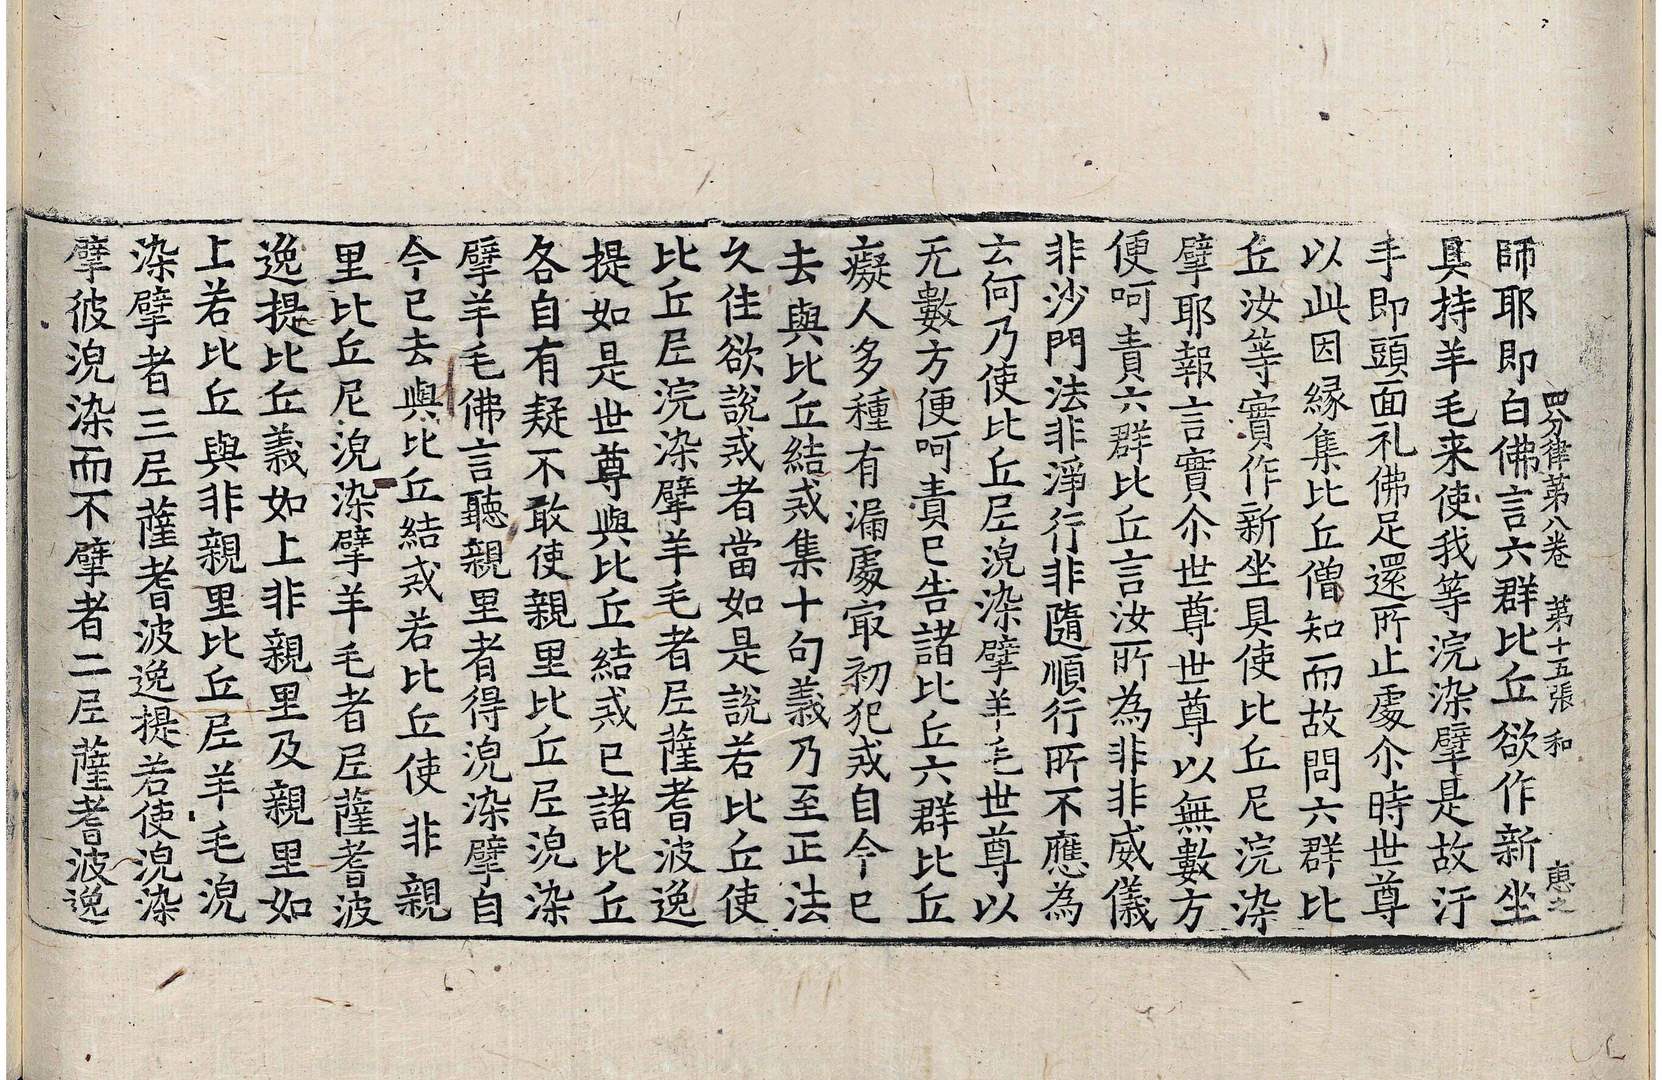 四分律第八卷　第十五張　和　惠之
師耶即白佛言六群比丘欲作新坐
具持羊毛来使我等浣染擘是故汙
手即頭面礼佛足還所止處尒時世尊
以此因緣集比丘僧知而故問六群比
丘汝等實作新坐具使比丘尼浣染
擘耶報言實尒世尊世尊以無數方
便呵責六群比丘言汝所為非非威儀
非沙門法非淨行非隨順行所不應為
云何乃使比丘尼浣染擘羊毛世尊以
无數方便呵責已告諸比丘六群比丘
癡人多種有漏處㝡初犯戒自今已
去與比丘結戒集十句義乃至正法
久住欲說戒者當如是說若比丘使
比丘尼浣染擘羊毛者尼薩耆波逸
提如是世尊與比丘結戒已諸比丘
各自有疑不敢使親里比丘尼浣染
擘羊毛佛言聽親里者得浣染擘自
今已去與比丘結戒若比丘使非親
里比丘尼浣染擘羊毛者尼薩耆波
逸提比丘義如上非親里及親里如
上若比丘與非親里比丘尼羊毛浣
染擘者三尼薩耆波逸提若使浣染
擘彼浣染而不擘者二尼薩耆波逸